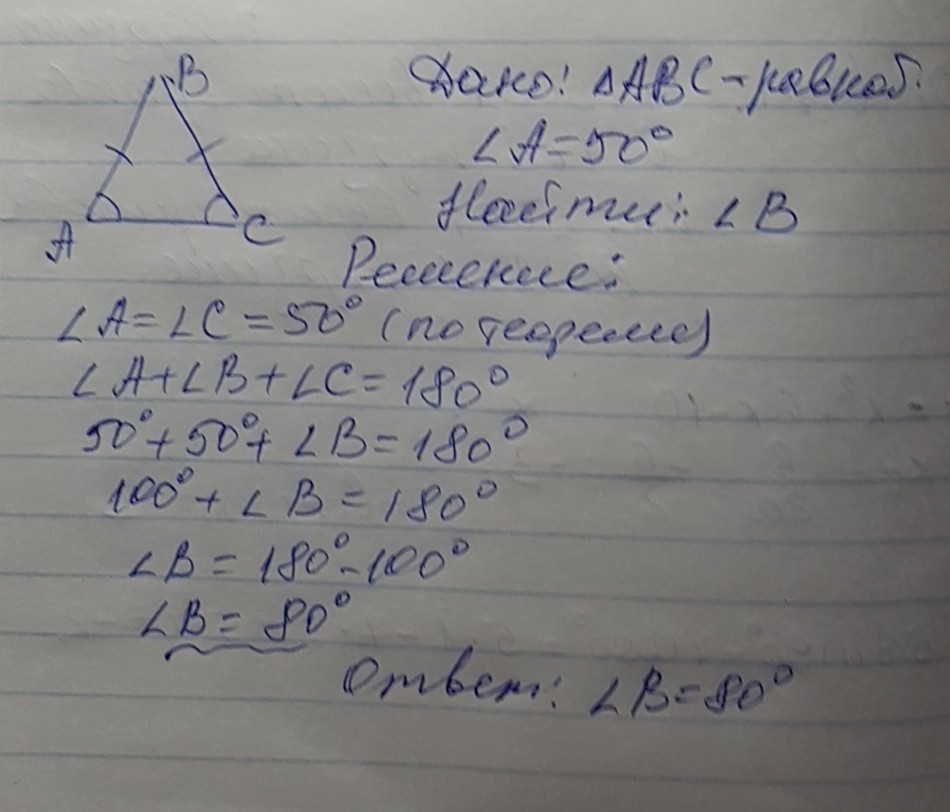 B
A
C
Дано: ΔABC - равноб.
∠A=50°
Найти: ∠B
Решение:
∠A=∠C=50° (по теореме)
∠A+∠B+∠C=180°
50°+50°+∠B=180°
100°+∠B=180°
∠B=180°-100°
∠B=80°
Ответ: ∠B=80°